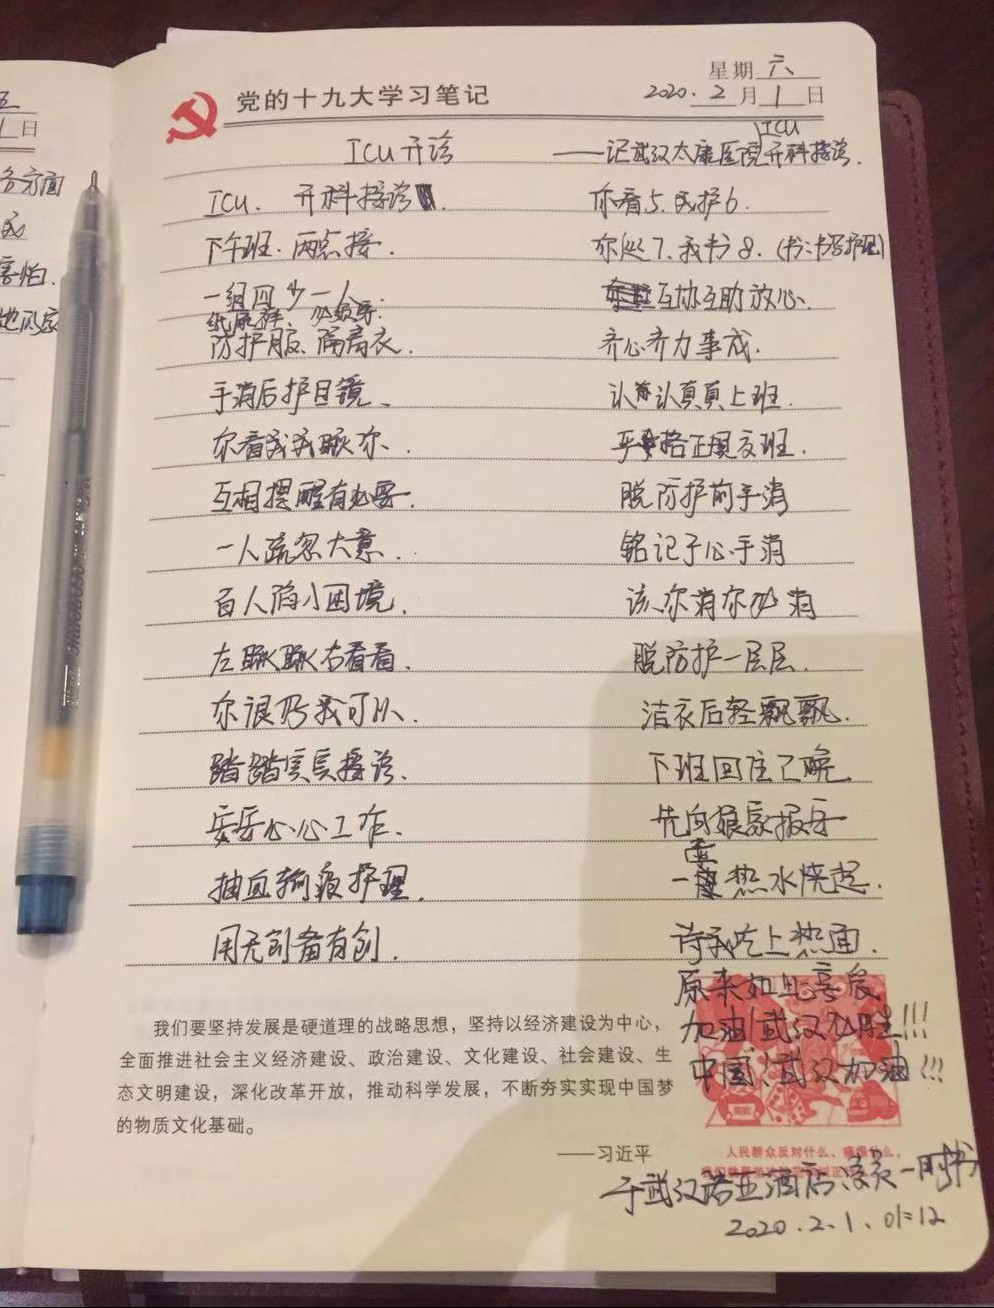 五
1日
各方面
我
害怕.
党的十九大学习笔记
星期 六
2020. 2 月 1 日
ICU开诊
——记武汉太康医院ICU开科接诊.
ICU. 开科接诊.
下午班.两点接.
一组四少一人.
纸尿裤、必须要.
防护服、隔离衣.
手消后护目镜、
你看我我瞅你.
互相提醒有必要.
一人疏忽大意.
百人陷入困境.
左瞅瞅右看看.
你很好我可以.
踏踏实实接诊.
安安心心工作.
抽血输液护理.
用无创备有创.
你看5.我护6.
你处7.我书8.(书:书写护理)
互协互助放心.
齐心齐力事成.
认认真真上班.
严格正规交班.
脱防护前手消
铭记于心手消
该你消你必消
脱防护一层层.
洁衣后轻飘飘.
下班回住已晚
先向娘家报安
一壶热水烧起.
待我吃上热面.
原来如此幸食
加油!武汉必胜!!!
中国、武汉加油!!!
我们要坚持发展是硬道理的战略思想，坚持以经济建设为中心，
全面推进社会主义经济建设、政治建设、文化建设、社会建设、生
态文明建设，深化改革开放，推动科学发展，不断夯实实现中国梦
的物质文化基础。
——习近平
人民群众反对什么、痛恨什么，
于武汉诺亚酒店、
2020.2.1、01:12